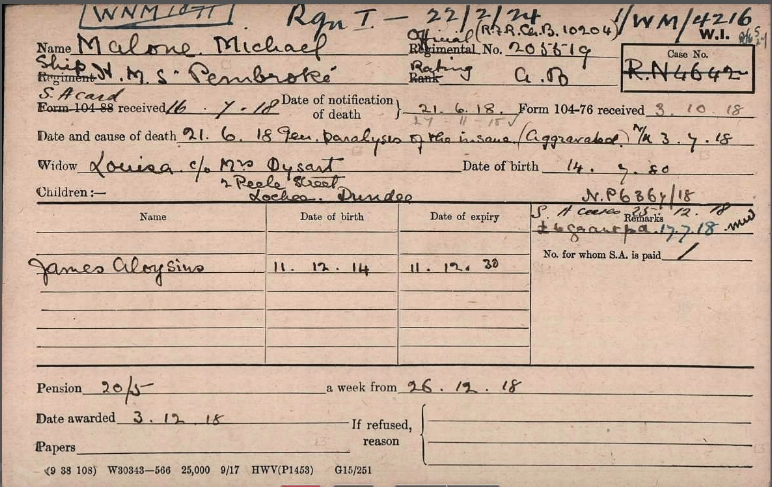 WNM 10471 Rgn I - 22/2/24 1/WM/4216
Official (R.F.R. Ch. B. 10204) W.I.
Name Malone. Michael Regimental No. 205519 Case No.
Ship Rating
Regiment H.M.S. Pembroke Rank A.B R.N4642
S.A card
Form 104-88 received 16.7.18 Date of notification of death } 21.6.18. Form 104-76 received 3.10.18
Date and cause of death 21.6.18 Gen. paralysis of the insane (aggravated) 3.7.18
Widow Louisa c/o Mrs Dysart Date of birth 14.7.80
2 Peele Street
Children:— Lochee. Dundee N.P6364/18
Name Date of birth Date of expiry Remarks
S.A ceases 25.12.18
£6 grant pd. 17.7.18
No. for whom S.A. is paid /
James Aloysius 11.12.14 11.12.30
Pension 20/5 a week from 26.12.18
Date awarded 3.12.18 If refused, reason
Papers
(9 38 108) W30343—566 25,000 9/17 HWV(P1453) G15/251